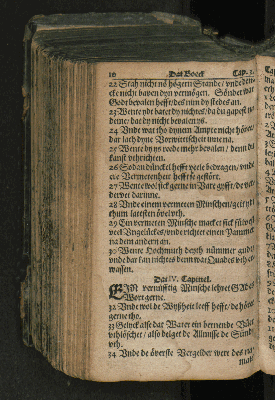 10 Dat Boeck Cap. 3.
22 Stah nicht na högern Stande / unde den-
cke nicht baven dyn vermögen. Sünder wat
Godt bevalen hefft / des nim dy stedes an.
23 Wente ydt batet dy nichts / dat du gapest na
deme / dat dy nicht bevalen ys.
24 Unde wat tho dynem Ampte nicht höret /
dar lath dyne Vorwitzicheit
25 Wente dy ys rede mehr bevalen / denn du
kanst uthrichten.
26 Sodan dünckel hefft vele bedragen / unde
ere Vermetenheit hefft se gestört.
27 Wente wol sick gerne in Vare gyfft / de ver-
dervet darinne.
28 Unde einem vermeten Minschen / geit ydt
thom latesten övel uth.
29 Ein vermeten Minsche maket sick sülvest
veel Ungelückes / unde richtet einen Jammer
na dem andern an.
30 Wente Hochmuth deyth nümmer gudt /
unde dar kan nichtes denn wat Quades uth er-
wassen.
Dat IV. Capittel.
EIN vernünfftig Minsche lehret Gades
Wort gerne.
32 Unde wol de Wyßheit leeff hefft / de höret
gerne tho.
33 Gelyck alse dat Water ein bernende Vüer
uthlöschet / also delget de Allmisse de Sünde
uth.
34 Unde de överste Vergelder wert des na-
mals